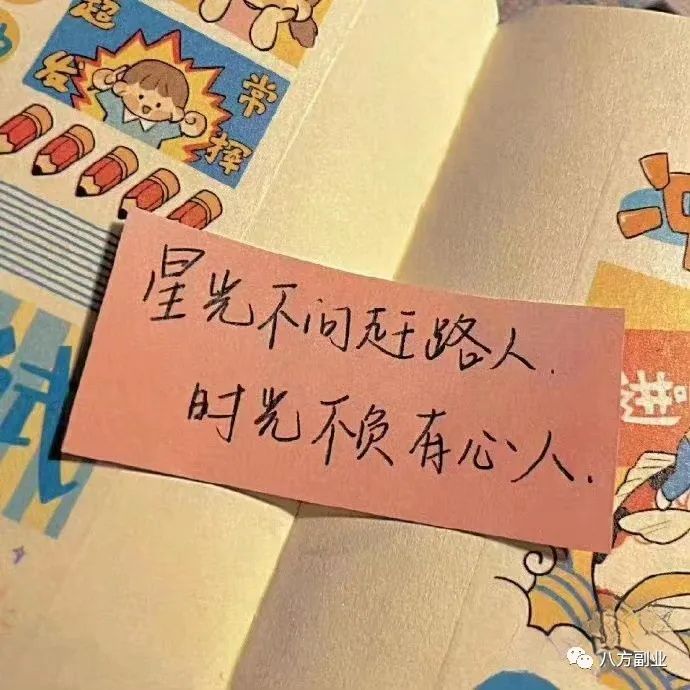 起
发 常
挥
星光不问赶路人.
时光不负有心人.
试
八方副业